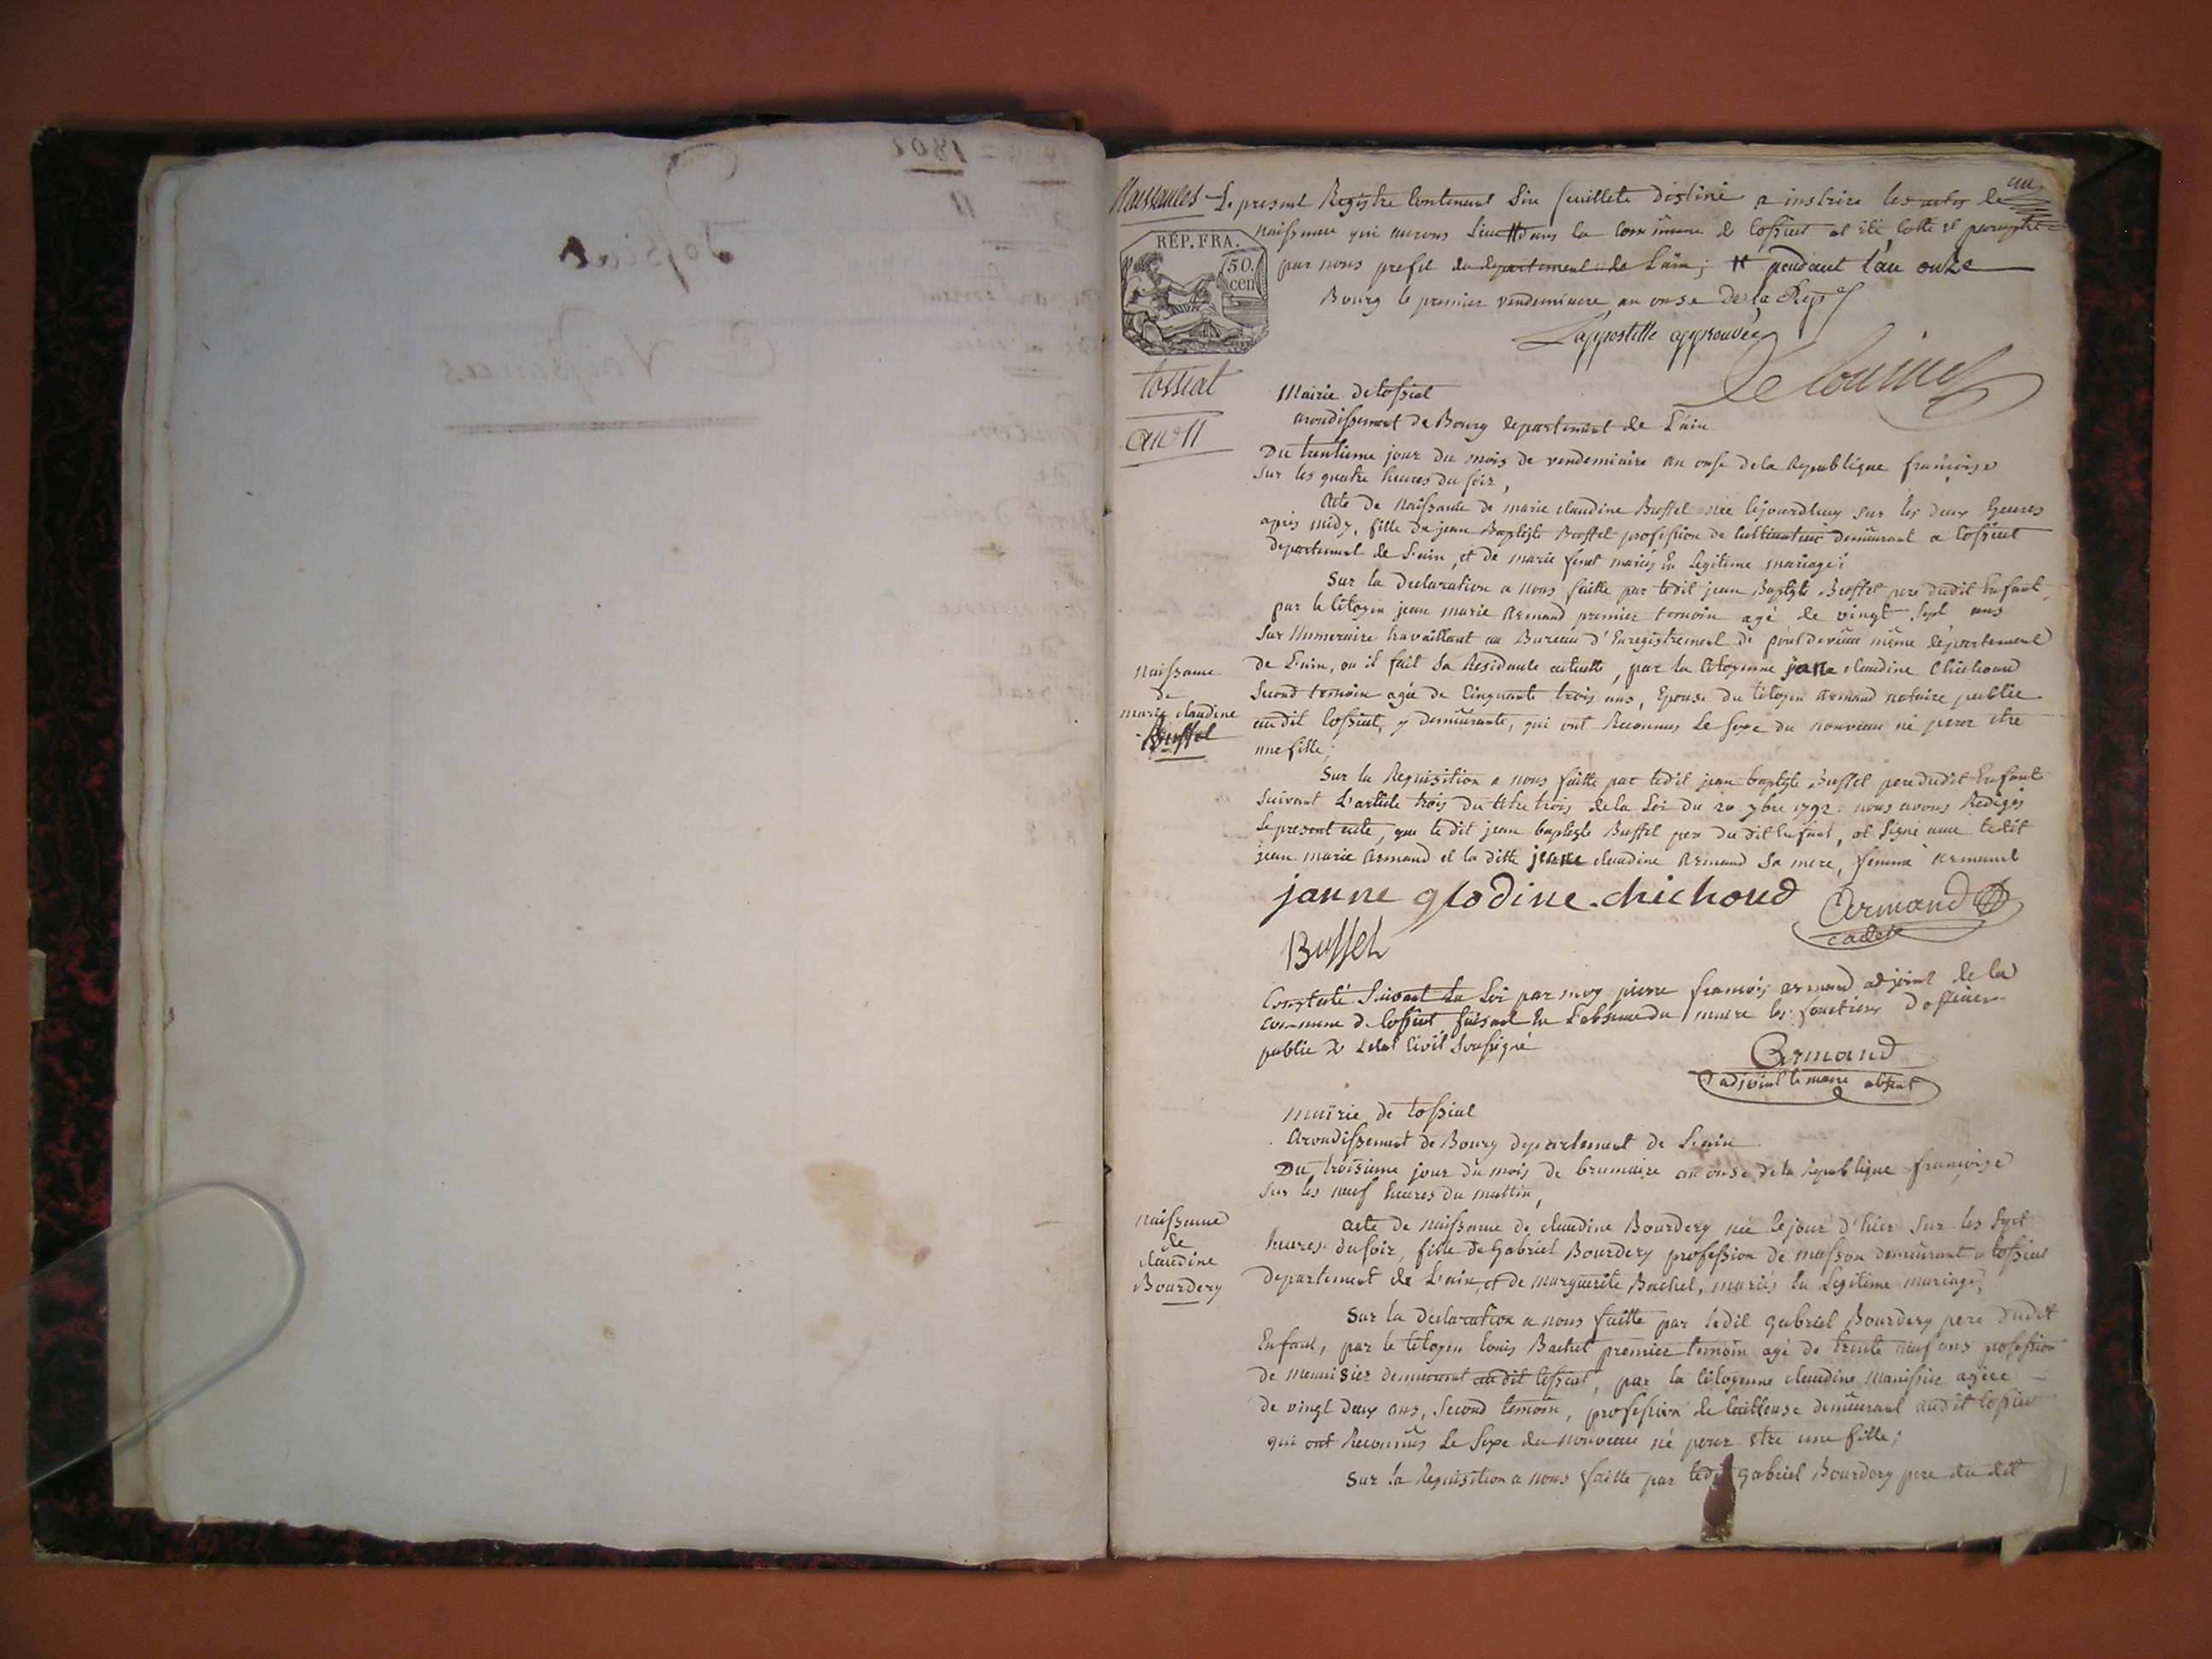 Naissances Le present Registre Contenant Six feuillets destiné a inscrire les actes de
naissance qui aurons lieu # dans la commune de tossiat at été cotté et paraphé
par nous prefet du departement de Lain; # pendant l'an onze
Bourg le premier vendemiaire, an onse de la Rep.
L'appostille approuvée
RÉP. FRA.
50.
cen
tossiat
an 11
Mairie de tossiat
arondissement de Bourg departement de L'ain
Du trentieme jour du mois de vendemiaire an onse de la Republique françoise
sur les quatre heures du soir,
Acte de Naissance de marie claudine Buffet née cejourdhuy sur les deux heures
aprés midy, fille de jean Baptiste Buffet profession de cultivateur demeurant a tossiat
departement de L'ain, et de marie fenet mariés En legitime mariage;
Sur la declaration a nous faitte par ledit jean Baptiste Buffet pere dudit Enfant,
par le citoyen jean marie armand premier temoin agé de vingt sept ans
Sur Numeraire travaillant au Bureau d'Enregistrement de pont deveau même departement
de L'ain, ou il fait Sa Residance actuelle, par la citoyenne jane claudine Chichoud
Second temoin agée de Cinquante trois ans, Epouse du citoyen armand notaire public
audit tossiat, y demeurante, qui ont Reconnus Le sexe du nouveau né pour etre
une fille;
naissance
de
marie claudine
Buffet
Sur la Requisition a nous faitte par ledit jean baptiste Buffet pere dudit Enfant
Suivant L'article trois du titre trois de la Loi du 20 7bre 1792. nous avons Redigés
Le present acte, que le dit jean baptiste Buffet pere du dit Enfant, at Signé avec ledit
jean marie armand et la ditte jeane claudine armand Sa mere, femme armand
janne glodine chichoud
Armand
cadet
Buffet
Constaté Suivant La Loi par moy pierre françois armand adjoint de la
commune de tossiat, faisant En L'absence du maire les fonctions D'officier
public de L'etat Civil Soussigné
Armand
adjoint le maire absent
mairie de tossiat
Arondissement de Bourg departement de L'ain
Du troisieme jour du mois de brumaire an onse de la Republique françoise
Sur les neuf heures du mattin,
naissance
de
claudine
Bourdery
acte de naissance de claudine Bourdery née le jour d'hier Sur les Sept
heures du soir, fille de Gabriel Bourdery profession de masson demeurant a tossiat
departement de L'ain, et de marguerite Bachet, mariés En Legitime mariage,
Sur la declaration a nous faitte par ledit gabriel Bourdery pere dudit
Enfant, par le citoyen louis Bachet premier temoin agé de trente neuf ans profession
de menuisier demeurant audit tossiat, par la citoyenne claudine manissier agée
de vingt deux ans, Second temoin, profession de tailleuse demeurant audit tossiat
qui ont Reconnûs Le Sexe du nouveau né pour etre une fille;
Sur la Requisition a nous faitte par ledit gabriel Bourdery pere du dit